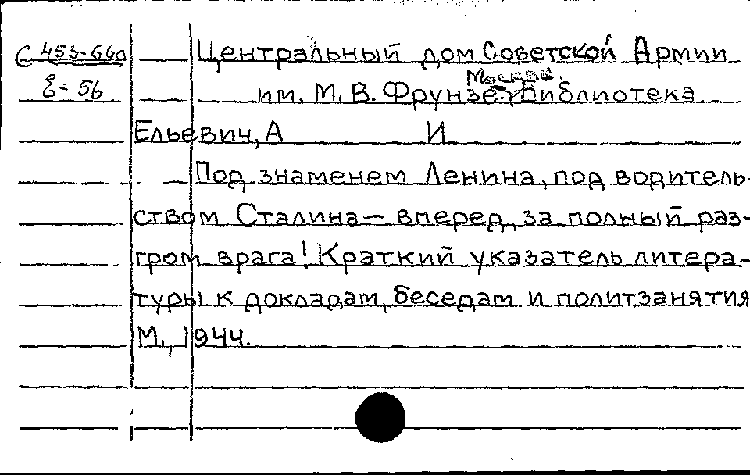 С 453-640
Е-56
Центральный дом Советской Армии
Москва.
им. М. В. Фрунзе. Библиотека
Ельевич, А И
Под знаменем Ленина, под водитель-
ством Сталина — вперед, за полный раз-
гром врага! Краткий указатель литера-
туры к докладам, беседам и политзанятия
М., 1944.